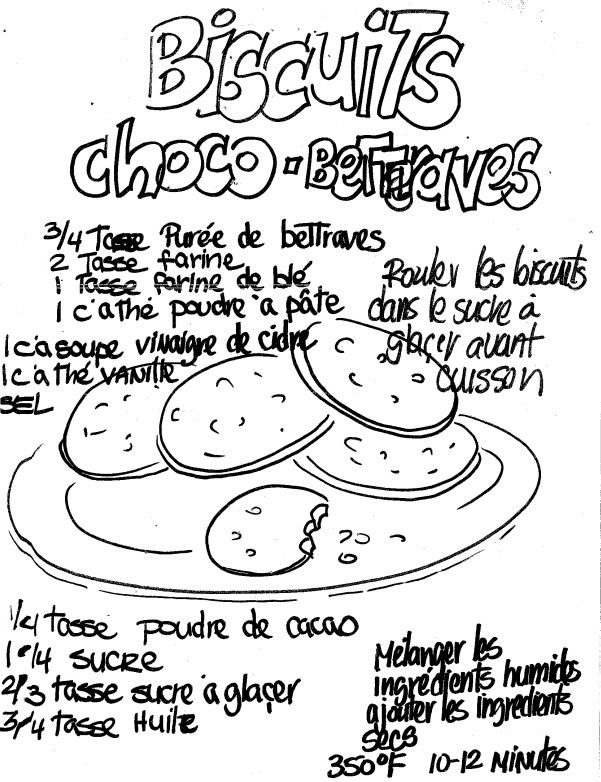 Biscuits
choco-Bettraves
3/4 Tasse Purée de bettraves
2 Tasse farine
1 Tasse farine de blé
1 c à thé poudre à pâte
1 c à soupe vinaigre de cidre
1 c à thé VANille
SEL
Rouler les biscuits
dans le sucre à
glaçer avant
cuisson
1/4 tasse poudre de cacao
1 1/4 sucre
2/3 tasse sucre à glaçer
3/4 tasse Huile
Mélanger les
ingrédients humides
ajouter les ingredients
secs
350°F 10-12 Minutes